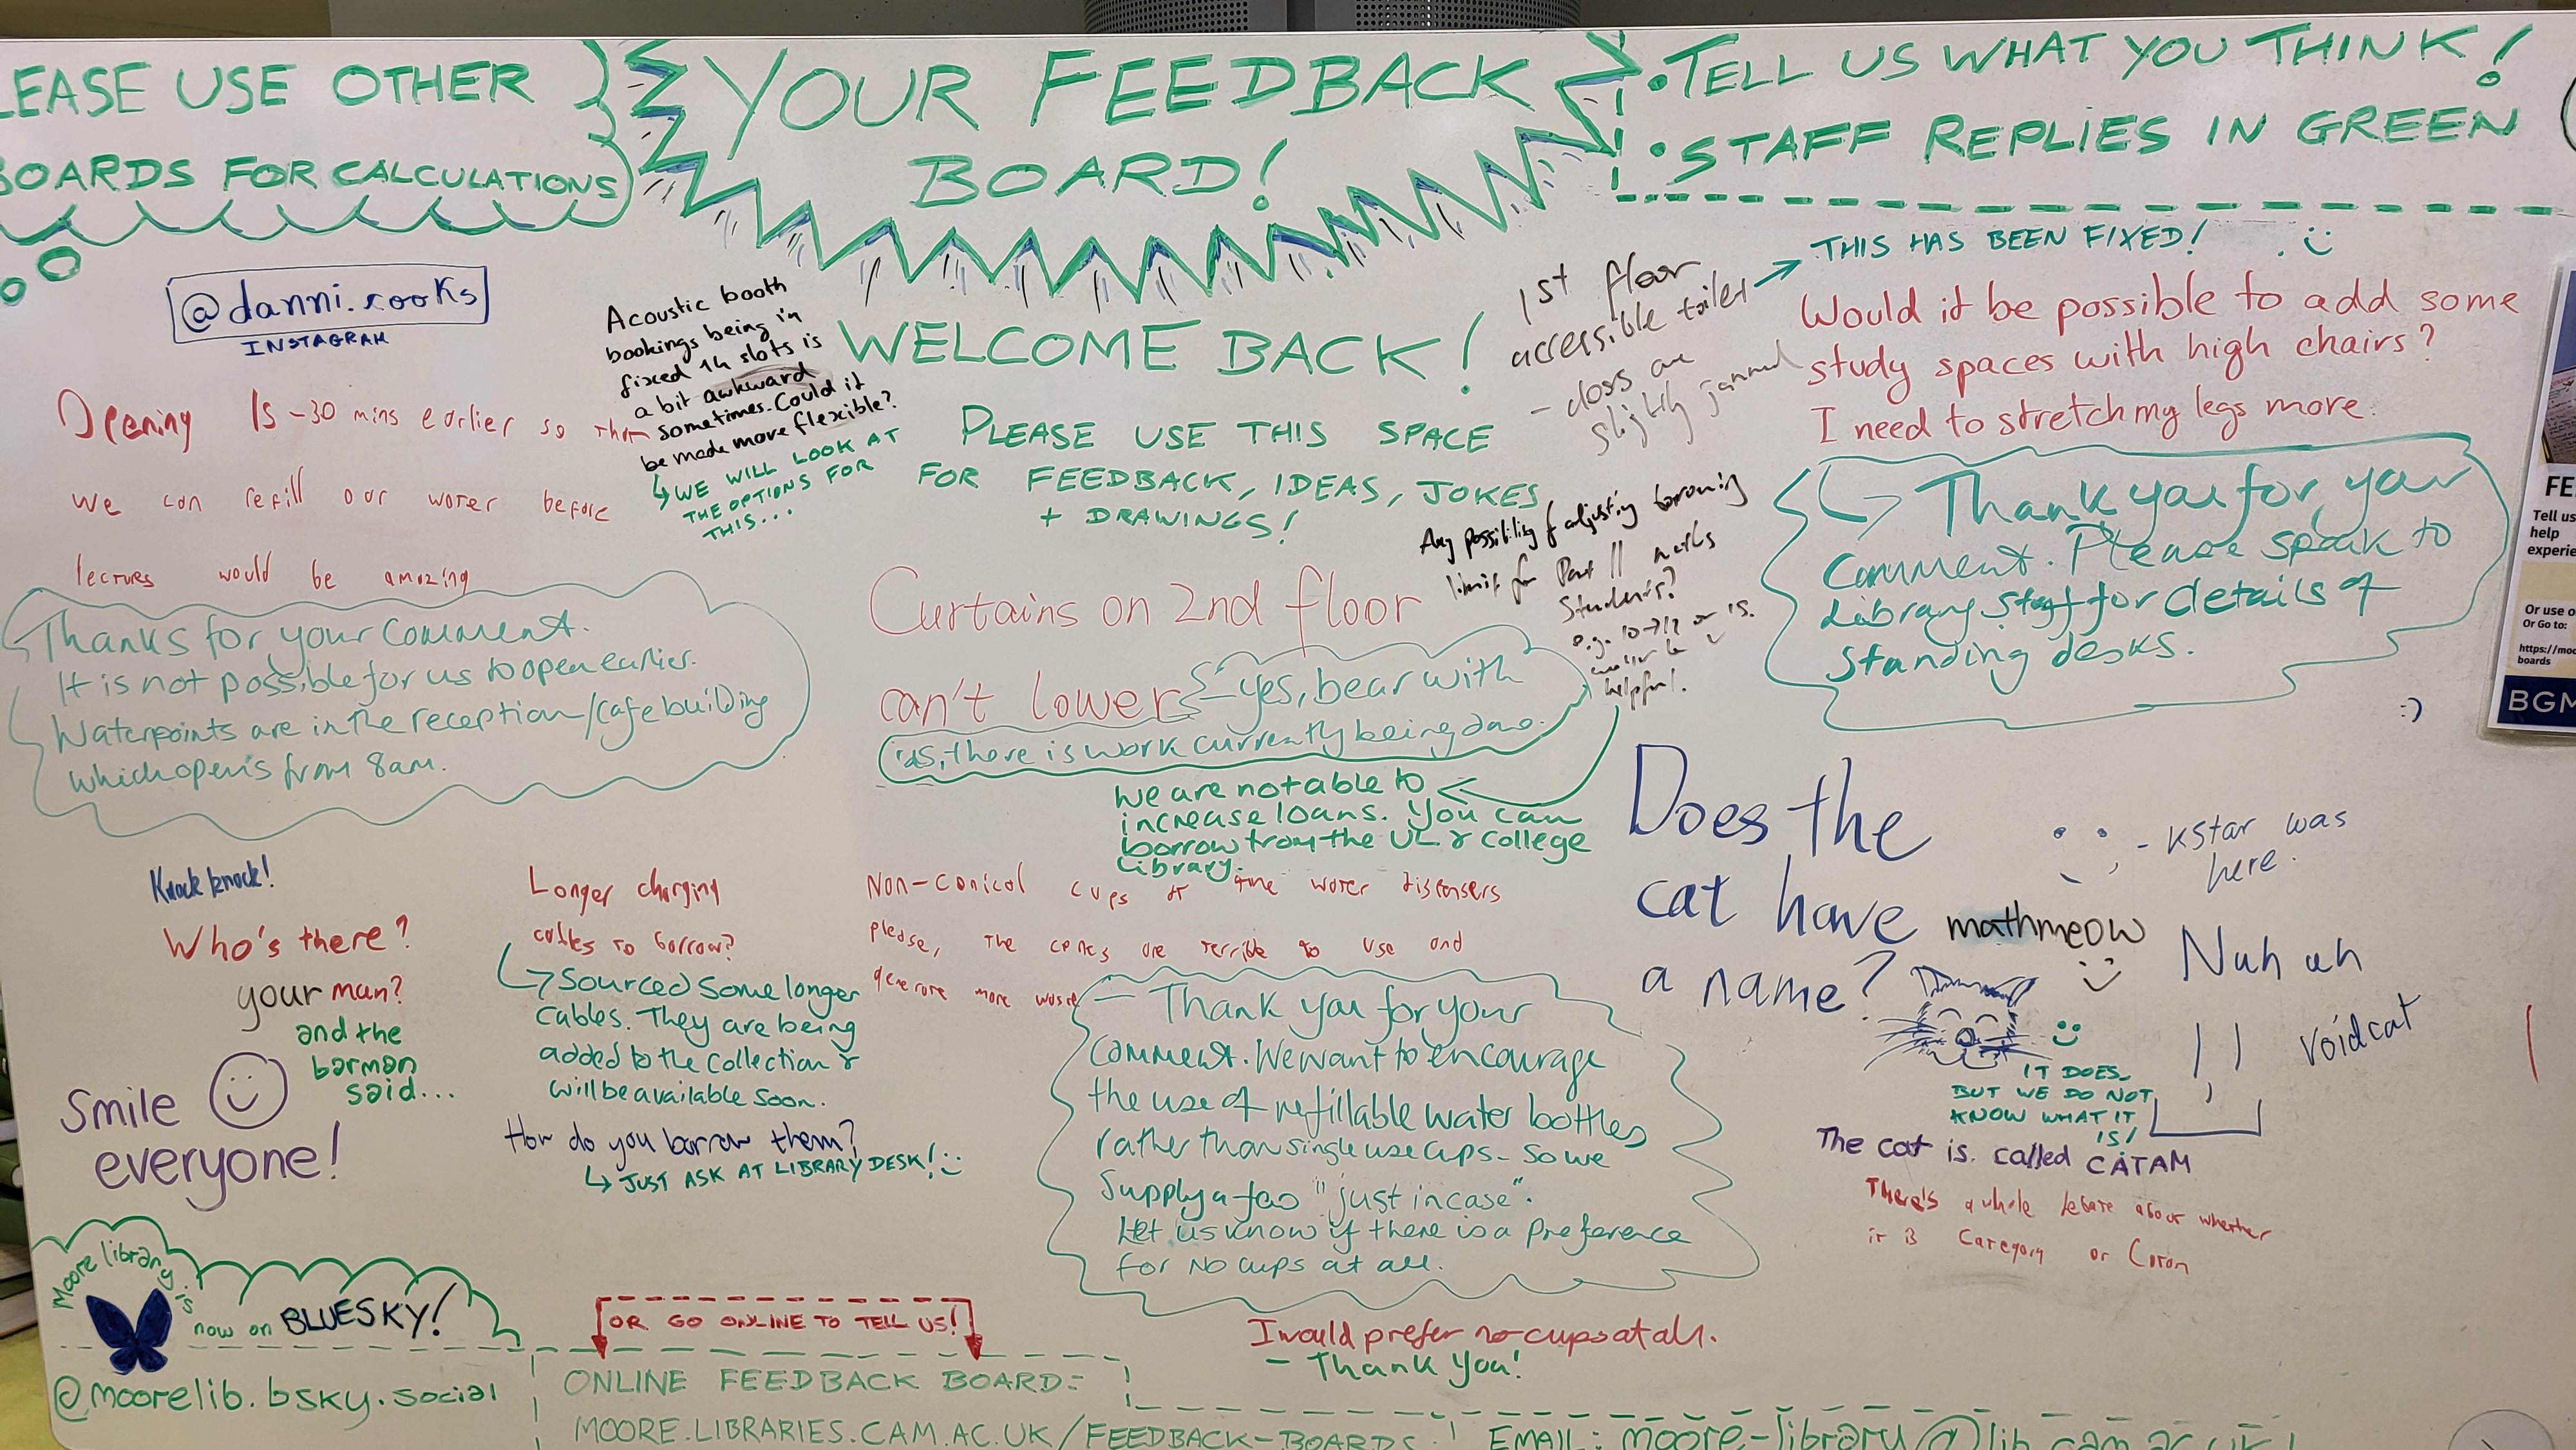 LEASE USE OTHER
BOARDS FOR CALCULATIONS
YOUR FEEDBACK
BOARD!
• TELL US WHAT YOU THINK!
• STAFF REPLIES IN GREEN
@danni.rooks
INSTAGRAM
Acoustic booth
bookings being in
fixed 1h slots is
a bit awkward
sometimes. Could it
be made more flexible?
WE WILL LOOK AT
THE OPTIONS FOR
THIS...
WELCOME BACK!
PLEASE USE THIS SPACE
FOR FEEDBACK, IDEAS, JOKES
+ DRAWINGS!
1st floor
accessible toilet
- doors are
slightly jammed
THIS HAS BEEN FIXED!
Would it be possible to add some
study spaces with high chairs?
I need to stretch my legs more.
Thank you for your
comment. Please speak to
Library staff for details of
standing desks.
Opening 15-30 mins earlier so that
we can refill our water before
lectures would be amazing
Thanks for your comment.
It is not possible for us to open earlier.
Waterpoints are in the reception/cafe building
which opens from 8am.
Curtains on 2nd floor
can't lower
yes, bear with
us, there is work currently being done.
Any possibility of adjusting borrowing
limit for Part II maths
Students?
e.g. 10→12 or 15.
would be
helpful.
We are not able to
increase loans. You can
borrow from the UL & College
Library.
Knock knock!
Who's there?
your man?
and the
barman
said...
Smile
everyone!
Longer charging
cables to borrow?
Sourced some longer
cables. They are being
added to the collection &
will be available soon.
How do you borrow them?
JUST ASK AT LIBRARY DESK!
Non-conical cups at the water dispensers
please, the cones are terrible to use and
generate more waste
- Thank you for your
comment. We want to encourage
the use of refillable water bottles
rather than single use cups - so we
supply a few "just in case".
Let us know if there is a preference
for no cups at all.
I would prefer no cups at all.
- Thank you!
:)
Does the
cat have
a name?
mathmeow
- kstar was
here.
Nuh uh
voidcat
IT DOES,
BUT WE DO NOT
KNOW WHAT IT
IS!
The cat is called CATAM
There's a whole debate about whether
it is Category or Coton
Moore library is
now on BLUESKY!
@moorelib.bsky.social
OR GO ONLINE TO TELL US!
ONLINE FEEDBACK BOARD:
MOORE.LIBRARIES.CAM.AC.UK/FEEDBACK-BOARDS
EMAIL: moore-library@lib.cam.ac.uk!
FE
Tell us
help
experie
Or use o
Or Go to:
https://moo
boards
BGM